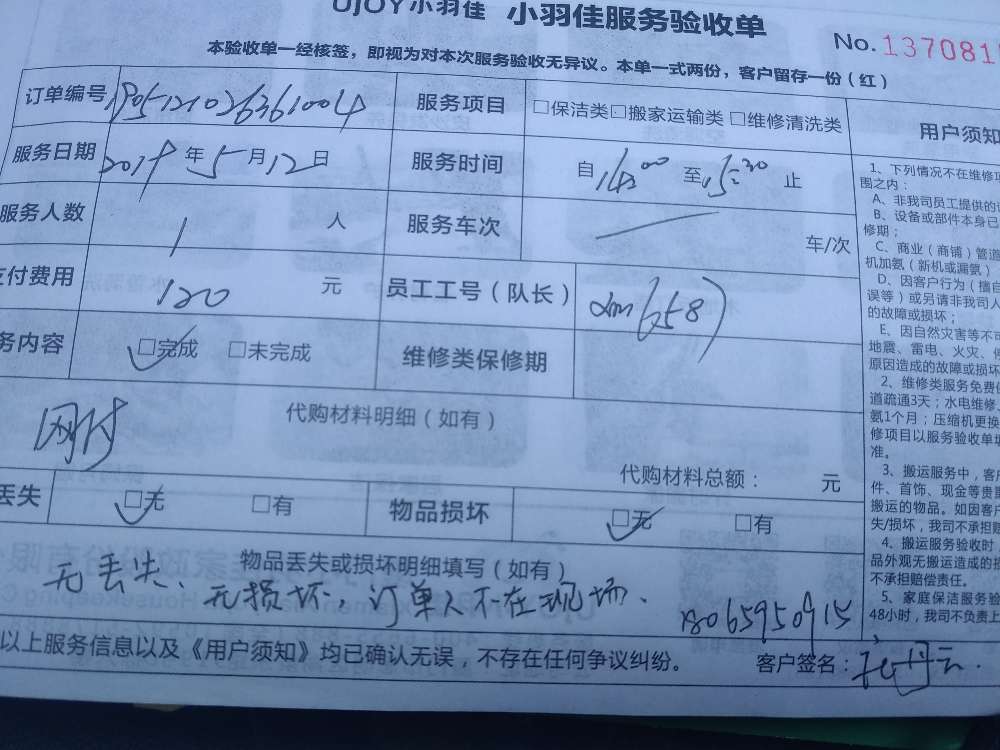 UJOY小羽佳 小羽佳服务验收单
No. 137081
本验收单一经核签，即视为对本次服务验收无异议。本单一式两份，客户留存一份（红）
订单编号 服务项目 □保洁类□搬家运输类 □维修清洗类
服务日期 2019年5月12日 服务时间 自14:00 至15:30 止
服务人数 1 人 服务车次 车/次
支付费用 120 元 员工工号（队长）
务内容 □完成 □未完成 维修类保修期
代购材料明细（如有）
网付
代购材料总额： 元
丢失 □无 □有 物品损坏 □无 □有
物品丢失或损坏明细填写（如有）
无丢失、无损坏，订单人不在现场、
18065950915
以上服务信息以及《用户须知》均已确认无误，不存在任何争议纠纷。 客户签名：
用户须知
1、下列情况不在维修
围之内：
A、非我司员工提供的
B、设备或部件本身已
修期；
C、商业（商铺）管道
机加氨（新机或漏氨）
D、因客户行为（擅自
误等）或另请非我司人
的故障或损坏；
E、因自然灾害等不可
地震、雷电、火灾、
原因造成的故障或损坏
2、维修类服务免费
道疏通3天；水电维修
氨1个月；压缩机更换
修项目以服务验收单
准。
3、搬运服务中，客
件、首饰、现金等贵
搬运的物品。如因客
失/损坏，我司不承担
4、搬运服务验收时
品外观无搬运造成的
不承担赔偿责任。
5、家庭保洁服务验
48小时，我司不负责上